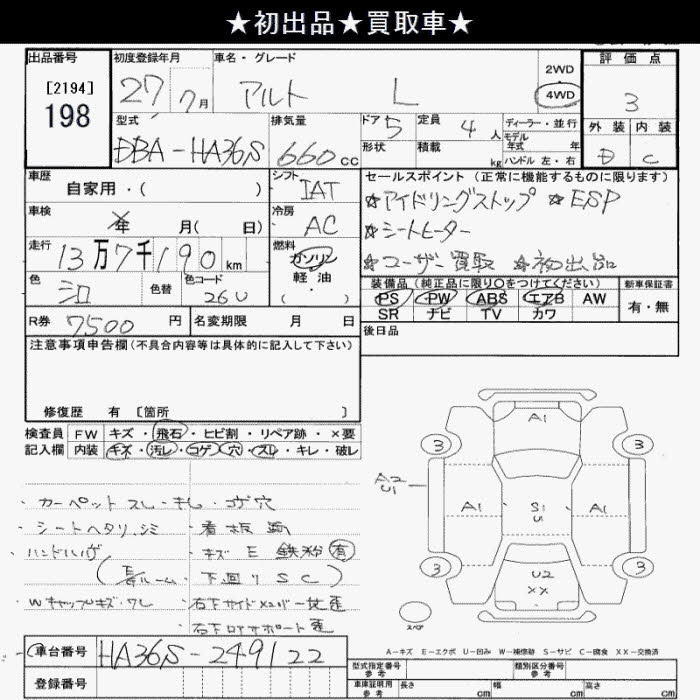 ★初出品★買取車★
出品番号 初度登録年月 車名・グレード 評価点
[2194] 198 27 7月 アルト L 2WD 4WD 3
型式 排気量 ドア 定員 ディーラー・並行 外装 内装
DBA-HA36S 660cc 5 4人 モデル年式 年 D C
形状 積載 kg ハンドル 左・右
車歴 シフト セールスポイント (正常に機能するものに限ります)
自家用・( ) IAT ☆アイドリングストップ ☆ESP
車検 年 月( 日) 冷房 AC ☆シートヒーター
走行 13万7千190km 燃料 ガソリン 軽油 ( ) ☆ユーザー買取 ☆初出品
色 色替 色コード 26U 装備品(純正品に限り○をつけてください) 新車保証書
PS PW ABS エアB AW 有・無
SR ナビ TV カワ
R券 7500円 名変期限 月 日 後日品
注意事項申告欄(不具合内容等は具体的に記入して下さい)
修復歴 有 [箇所 ]
検査員 FW キズ・飛石・ヒビ割・リペア跡・×要
記入欄 内装 キズ・汚レ・コゲ・穴・スレ・キレ・破レ
A1
3 3
A2 U1 A1 S1 U1 A1
3 U2 XX 3
スペア
・カーペットスレ・キレ・コゲ穴
・シートヘタリ、シミ ・看板跡
・ハンドルハゲ ・キズ E 鉄粉 有
ルーム・下回りSC)
・Wキャップルキズ・ワレ ・右下サイドメンバー
・右下ロアサポート
A-キズ E-エクボ U-凹み W-補修跡 S-サビ C-腐食 XX-交換済
車台番号 HA36S-249122
型式指定番号 参考 類別区分番号 参考
登録番号 車庫証明用 参考 長さ cm 幅 cm 高さ cm